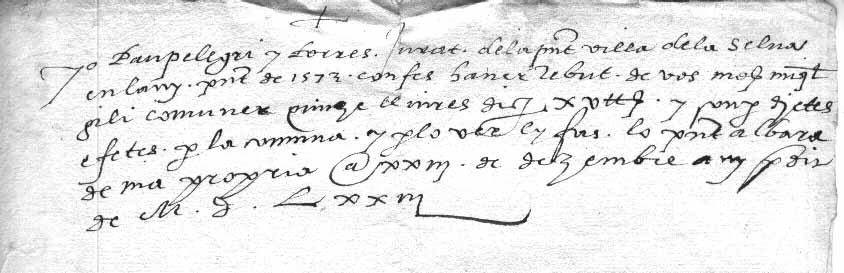 +
Jo Pau pelegri y torres. Jurat. de la pnt villa de la Selva
en lany. pnt de 1573. confes haver rebut. de vos mosj miql
gili comuner quinze lliures dich xv ll. y son dietes
efetes. p la comuna. y p lo ver ly fas. lo pnt albara
de ma propria a xxiii. de dezembre any
de M. D. Lxxiii